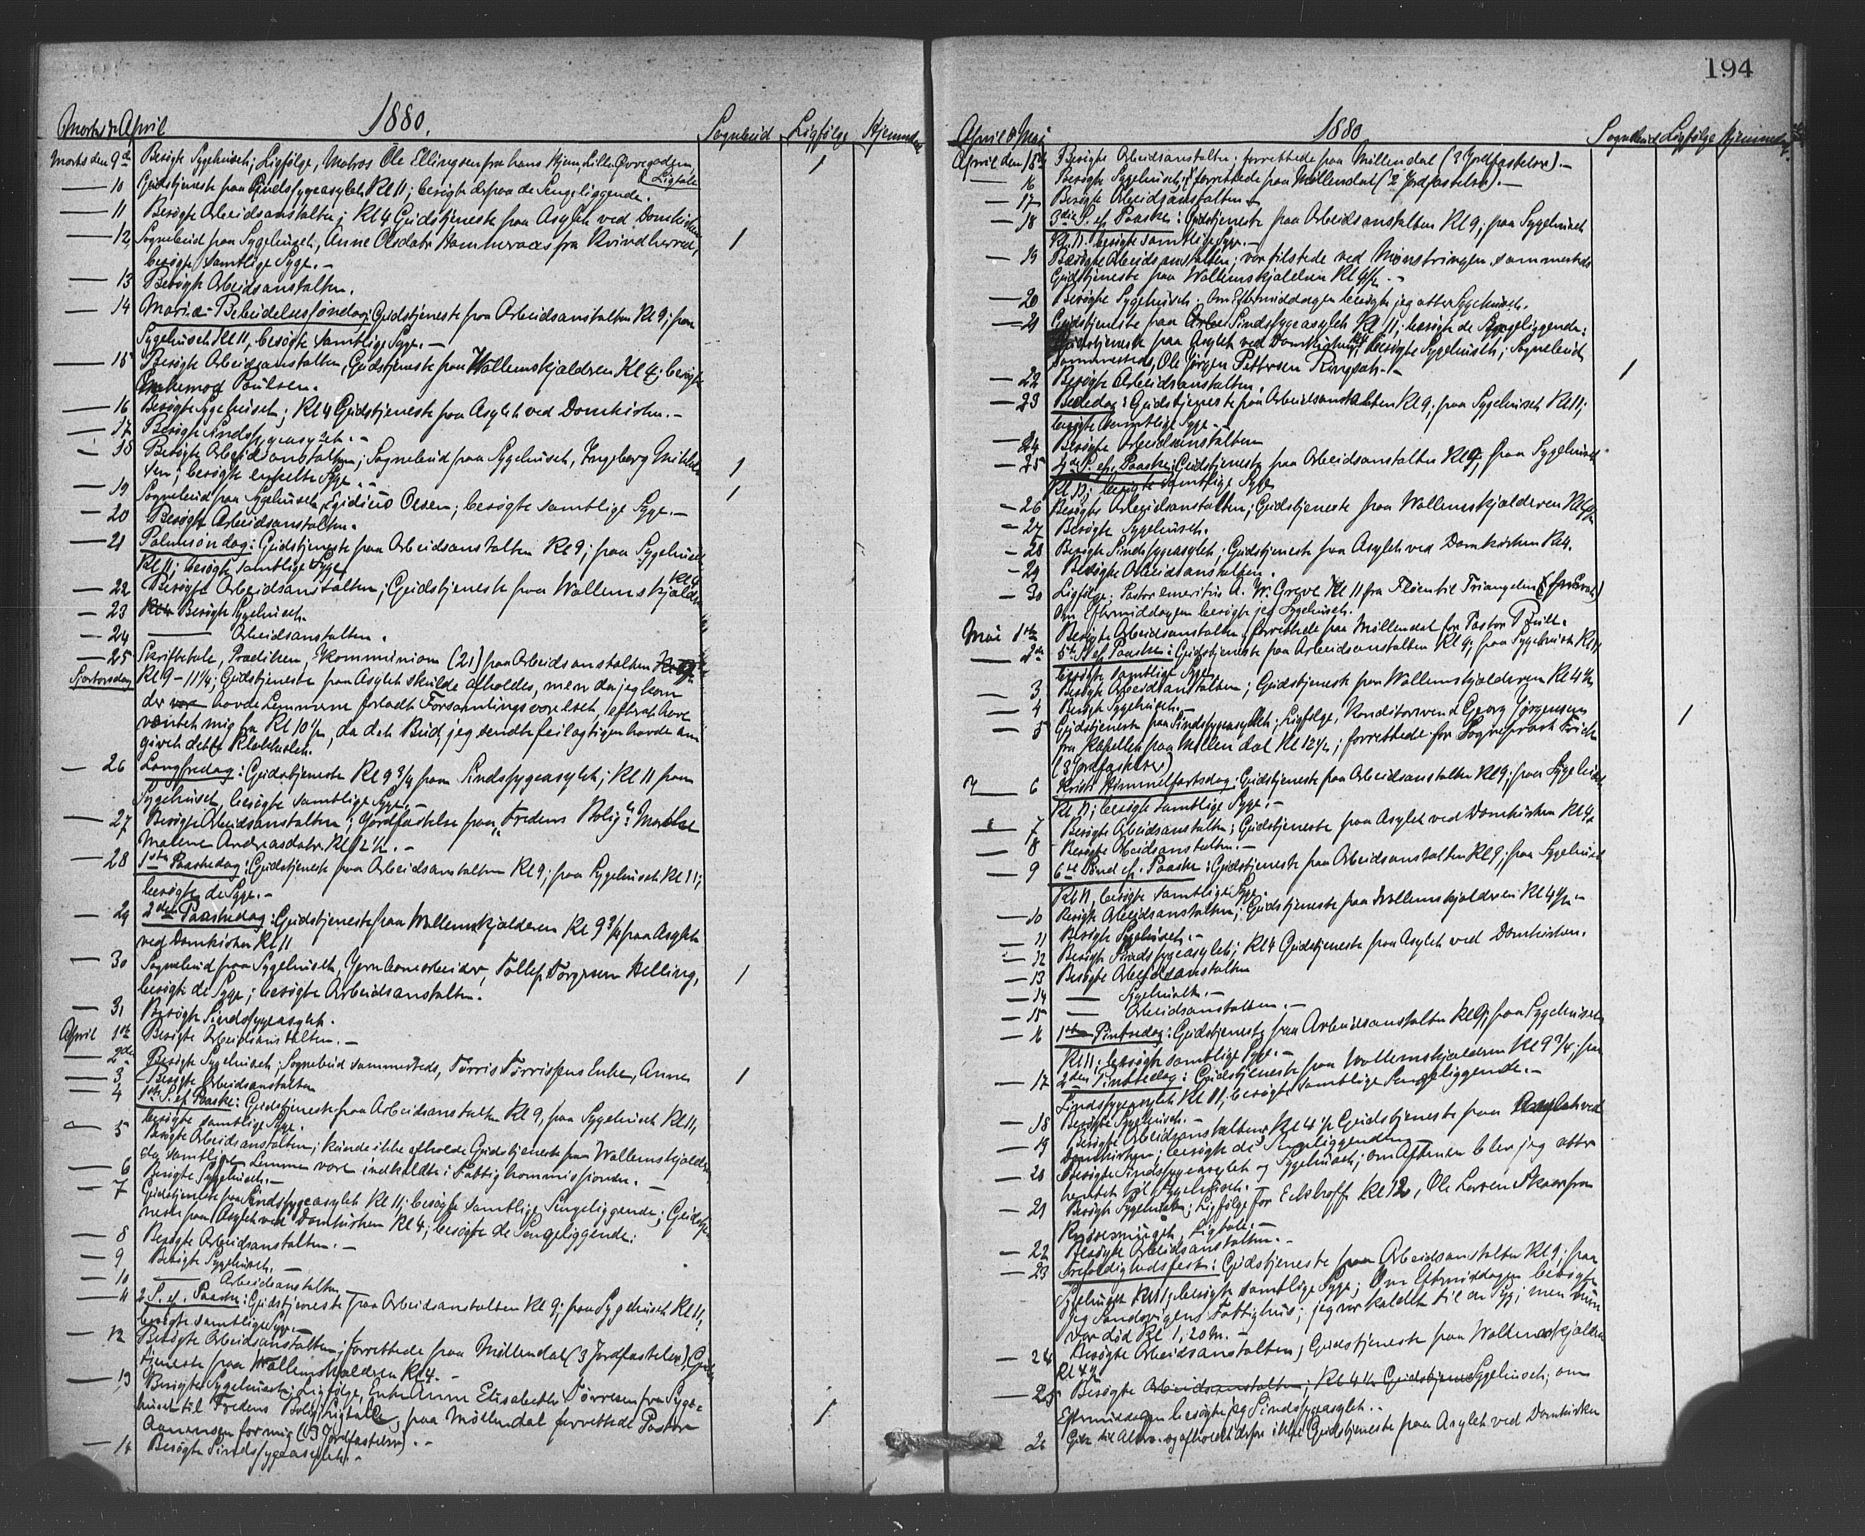 1880.
Marts & April
Sognebud Ligfølge Hjemmed
Marts den 9de Besøgte Sygehuset; Ligfølge, Matros Ole Ellingsen fra hans Hjem, Lille Øvregaden
Ligtale
10 Gudstjeneste paa Sindssygeasylet Kl 11; besøgte de Sengeliggende.
11 Besøgte Arbeidsanstalten; Kl 4 Gudstjeneste paa Asylet ved Domkirken
12 Sognebud paa Sygehuset, Anne Olsdatr Hammeraas fra Kvindherred, 1
besøgte samtlige Syge. -
13 Besøgte Arbeidsanstalten.
14 Mariæ-Bebudelsessøndag: Gudstjeneste paa Arbeidsanstalten Kl 9; paa
Sygehuset Kl 11, besøgte samtlige Syge. -
15 Besøgte Arbeidsanstalten, Gudstjeneste paa Wallemskjælderen Kl 4; besøgte
Poulsen.
16 Besøgte Sygehuset; Kl 4 Gudstjeneste paa Asylet ved Domkirken. -
17 Besøgte Sindssygeasylet. -
18 Besøgte Arbeidsanstalten; Sognebud paa Sygehuset, Ingeborg Mikkel- 1
sen; besøgte enkelte Syge. -
19 Sognebud paa Sygehuset, Egidius Olsen; besøgte samtlige Syge. - 1
20 Besøgte Arbeidsanstalten.
21 Palmesøndag: Gudstjeneste paa Arbeidsanstalten Kl 9; paa Sygehuset
Kl 11; besøgte samtlige Syge
22 Besøgte Arbeidsanstalten; Gudstjeneste paa Wallemskjælderen Kl 4
23 Besøgte Sygehuset.
24 Arbeidsanstalten.
25 Skriftetale, Prædiken, Kommunion (21) paa Arbeidsanstalten
Skjærtorsdag Kl 9-11¼; Gudstjeneste paa Asylet skulde afholdes, men da jeg kom
der havde Lemmerne forladt Forsamlingsværelset, efterat have
væntet mig fra Kl 10½, da det Bud, jeg sendte feilagtigen havde an
givet dette Klokkeslet.
26 Langfredag: Gudstjeneste Kl 9¾ paa Sindssygeasylet; Kl 11 paa
Sygehuset, besøgte samtlige Syge. -
27 Besøgte Arbeidsanstalten; Jordfæstelse paa "Fredens Bolig"
Malene Andreasdatr Kl 12½. -
28 1ste Paaskedag: Gudstjeneste paa Arbeidsanstalten Kl 9; paa Sygehuset Kl 11;
besøgte de Syge. -
29 2den Paaskedag: Gudstjeneste paa Wallemskjælderen Kl 9¾ paa Asylet
ved Domkirken Kl 11
30 Sognebud paa Sygehuset, Jernbanearbeider, Tollef Torgersen Helling, 1
besøgte de Syge; besøgte Arbeidsanstalten.
31 Besøgte Sindssygeasylet.
April 1ste Besøgte Arbeidsanstalten. -
2den Besøgte Sygehuset; Sognebud sammesteds, Tørris Tørrisens Enke, Anne 1
3 Besøgte Arbeidsanstalten
4 1ste S. ef. Paaske: Gudstjeneste paa Arbeidsanstalten Kl 9, paa Sygehuset Kl 11,
besøgte samtlige Syge.
5 Besøgte Arbeidsanstalten; kunde ikke afholde Gudstjeneste paa Wallemskjælderen
da samtlige Lemmer vare indkaldte i Fattigkommissionen. -
6 Besøgte Sygehuset. -
7 Gudstjeneste paa Sindssygeasylet Kl 11; besøgte samtlige Sengeliggende; Gudstje
neste paa Asylet ved Domkirken Kl 4; besøgte de Sengeliggende.
8 Besøgte Arbeidsanstalten. -
9 Besøgte Sygehuset. -
10 Arbeidsanstalten. -
11 2 S. ef. Paaske: Gudstjeneste paa Arbeidsanstalten Kl 9; paa Sygehuset Kl 11,
besøgte samtlige Syge. -
12 Besøgte Arbeidsanstalten; forrettede paa Møllendal (3 Jordfæstelser), Guds
tjeneste paa Wallemskjælderen Kl 4. -
13 Besøgte Sygehuset; Ligfølge, Enke Anne Elisabeth Tørresen fra Syge-
huset til Fredens Bolig, Ligtale, paa Møllendal forrettede Pastor 1
Aanensen for mig (3 Jordfæstelser). -
14 Besøgte Sindssygeasylet. -
194
1880
April & Mai
Sognebud Ligfølge Hjemmed
April den 15de Besøgte Arbeidsanstalten; forrettede paa Møllendal (3 Jordfæstelser). -
16 Besøgte Sygehuset; forrettede paa Møllendal (2 Jordfæstelser). -
17 Besøgte Arbeidsanstalten
18 3die S. ef. Paaske: Gudstjeneste paa Arbeidsanstalten Kl 9; paa Sygehuset
Kl 11. besøgte samtlige Syge. -
19 Besøgte Arbeidsanstalten; var tilstede ved Mønstringen sammesteds
Gudstjeneste paa Wallemskjælderen Kl 4½. -
20 Besøgte Sygehuset. Om Eftermiddagen besøgte jeg atter Sygehuset.
21 Gudstjeneste paa Sindssygeasylet Kl 11, besøgte de Sengeliggende;
Gudstjeneste paa Asylet ved Domkirken; besøgte Sygehuset; Sognebud
sammesteds, Ole Jørgen Pettersen Ringsak. - 1
22 Besøgte Arbeidsanstalten.
23 Bededag: Gudstjeneste paa Arbeidsanstalten Kl 9; paa Sygehuset Kl 11;
besøgte samtlige Syge. -
24 Besøgte Arbeidsanstalten
25 4de S. ef. Paaske: Gudstjeneste paa Arbeidsanstalten Kl 9; paa Sygehuset
Kl 11; besøgte samtlige Syge
26 Besøgte Arbeidsanstalten; Gudstjeneste paa Wallemskjælderen Kl 4½
27 Besøgte Sygehuset.
28 Besøgte Sindssygeasylet; Gudstjeneste paa Asylet ved Domkirken Kl 4.
29 Besøgte Arbeidsanstalten.
30 Ligfølge; Pastor emeritus A. W. Greve Kl 11 fra Fløien til Triangelen
Om Eftermiddagen besøgte jeg Sygehuset.
Mai 1ste Besøgte Arbeidsanstalten, forrettede paa Møllendal for Pastor
2den 5te S. ef. Paaske: Gudstjeneste paa Arbeidsanstalten Kl 9; paa Sygehuset Kl 11
besøgte samtlige Syge
3 Besøgte Arbeidsanstalten; Gudstjeneste paa Wallemskjælderen Kl 4½
4 Besøgte Sygehuset. -
5 Gudstjeneste paa Sindssygeasylet; Ligfølge, Konditorsvend Georg Jørgensen 1
fra Kapellet paa Møllendal Kl 12½; forrettede for Sogneprest Frich
(3 Jordfæstelser)
6 Kristi Himmelfartsdag: Gudstjeneste paa Arbeidsanstalten Kl 9; paa Sygehuset
Kl 11; besøgte samtlige Syge. -
7 Besøgte Arbeidsanstalten; Gudstjeneste paa Asylet ved Domkirken Kl 4
8 Besøgte Arbeidsanstalten. -
9 6te Sønd ef. Paaske: Gudstjeneste paa Arbeidsanstalten Kl 9; paa Sygehuset
Kl 11, besøgte samtlige Syge.
10 Besøgte Arbeidsanstalten; Gudstjeneste paa Wallemskjælderen Kl 4½. -
11 Besøgte Sygehuset. -
12 Besøgte Sindssygeasylet; Kl 4 Gudstjeneste paa Asylet ved Domkirken.
13 Besøgte Arbeidsanstalten
14 Sygehuset. -
15 Arbeidsanstalten. -
16 1ste Pintsedag: Gudstjeneste paa Arbeidsanstalten Kl 9; paa Sygehuset
Kl 11; besøgte samtlige Syge. -
17 2den Pintsedag: Gudstjeneste paa Wallemskjælderen Kl 9¾; paa
Sindssygeasylet Kl 11, besøgte samtlige Sengeliggende. -
18 Besøgte Sygehuset. -
19 Besøgte Arbeidsanstalten Kl 4½ Gudstjeneste paa Asylet ved
Domkirken; besøgte de Sengeliggende
20 Besøgte Sindssygeasylet og Sygehuset; om Aftenen blev jeg atter
hentet til Sygehuset. -
21 Besøgte Sygehuset; Ligfølge for Eckhoff Kl 12, Ole Larsen Skaar fra
Ligtale. -
22 Besøgte Arbeidsanstalten. -
23 Trefoldighedsfest: Gudstjeneste paa Arbeidsanstalten Kl 9; paa
Sygehuset Kl 11, besøgte samtlige Syge; Om Eftermiddagen besøgte
jeg Sandvigens Fattighus; jeg var kaldt til en Syg; men hun
var død Kl 1,20m. -
24 Besøgte Arbeidsanstalten; Gudstjeneste paa Wallemskjælderen
Kl 4½
25 Besøgte Arbeidsanstalten; Kl 4½ Gudstjeneste Sygehuset; om
Eftermiddagen besøgte jeg Sindssygeasylet. -
26 til Alters og afholdt derfor ikke Gudstjeneste paa Asylet ved Domkirken